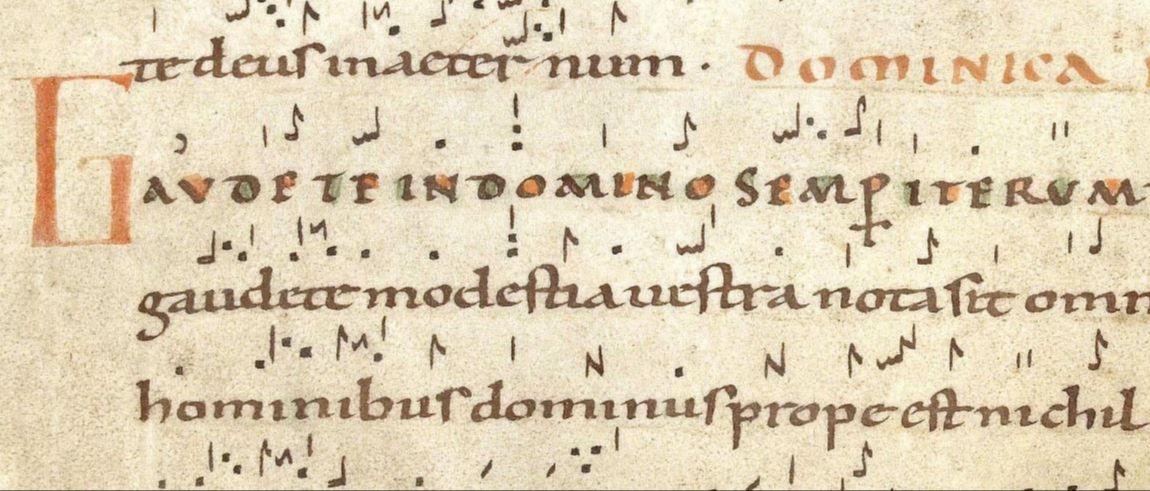 te deus in aeternum. DOMINICA
GAUDETE IN DOMINO SEMP ITERUM
gaudete modestia uestra nota sit omn
hominibus dominus prope est nichil